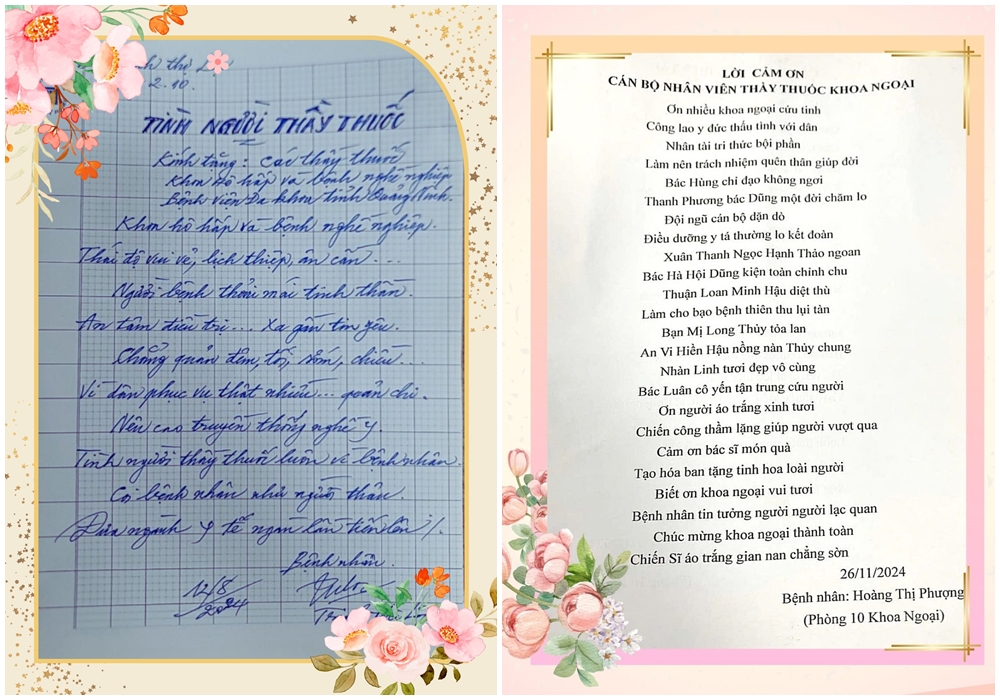 2.10.
TÌNH NGƯỜI THẦY THUỐC
Kính tặng: Các thầy thuốc
Khoa Hô hấp và bệnh nghề nghiệp
Bệnh viện Đa khoa tỉnh Quảng Ninh.
Khoa hô hấp và bệnh nghề nghiệp.
Thái độ vui vẻ, lịch thiệp, ân cần...
Người bệnh thoải mái tinh thần.
An tâm điều trị... Xa gần tin yêu.
Chẳng quản đêm, tối, sớm, chiều...
Vì dân phục vụ thật nhiều... quản chi.
Nêu cao truyền thống nghề y.
Tình người thầy thuốc luôn vì bệnh nhân.
Coi bệnh nhân như người thân.
Đưa ngành y tế ngàn lần tiến lên /.
Bệnh nhân.
12/8
2024
LỜI CẢM ƠN
CÁN BỘ NHÂN VIÊN THẦY THUỐC KHOA NGOẠI
Ơn nhiều khoa ngoại cứu tinh
Công lao y đức thấu tình với dân
Nhân tài tri thức bội phần
Làm nên trách nhiệm quên thân giúp đời
Bác Hùng chỉ đạo không ngơi
Thanh Phương bác Dũng một đời chăm lo
Đội ngũ cán bộ dặn dò
Điều dưỡng y tá thường lo kết đoàn
Xuân Thanh Ngọc Hạnh Thảo ngoan
Bác Hà Hội Dũng kiện toàn chỉnh chu
Thuận Loan Minh Hậu diệt thù
Làm cho bạo bệnh thiên thu lụi tàn
Bạn Mị Long Thủy tỏa lan
An Vi Hiền Hậu nồng nàn Thủy chung
Nhàn Linh tươi đẹp vô cùng
Bác Luân cô yến tận trung cứu người
Ơn người áo trắng xinh tươi
Chiến công thầm lặng giúp người vượt qua
Cảm ơn bác sĩ món quà
Tạo hóa ban tặng tinh hoa loài người
Biết ơn khoa ngoại vui tươi
Bệnh nhân tin tưởng người người lạc quan
Chúc mừng khoa ngoại thành toàn
Chiến Sĩ áo trắng gian nan chẳng sờn
26/11/2024
Bệnh nhân: Hoàng Thị Phượng
(Phòng 10 Khoa Ngoại)